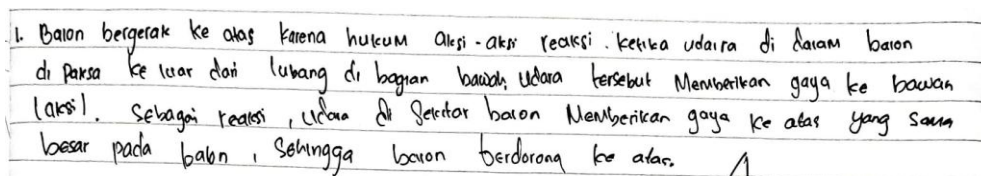 1. Balon bergerak ke atas karena hukum aksi-aksi reaksi. ketika udaira di dalam balon
di paksa ke luar dari lubang di bagian bawah, Udara tersebut Memberikan gaya ke bawah
(aksi). Sebagai reaksi, udara di Sekitar balon Memberikan gaya ke atas yang sama
besar pada balon, Sehingga balon terdorong ke atas.